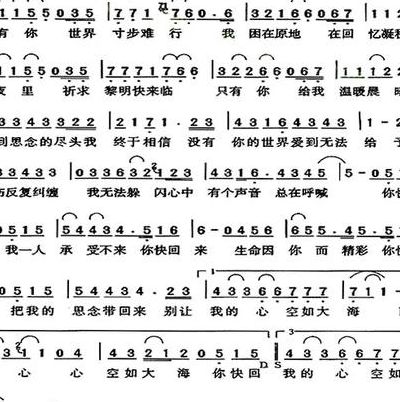 1155 035 | 771 1760·6 | 32166067 | 112
有 你 世界 寸步难 行 我 困在原地 在回 忆凝积
115 5035 | 77171766 | 3226 6067 | 11112
夜 里 祈求 黎明快来临 只有你 给我 温暖晨 曦
334 33 322 | 2171·23 | 43164343 | 1-
到思念的尽头我 终于相信 没有 你的世界爱到无法 给予
历反复纠缠 我无法躲 闪心中 有个声音 总在呼喊 你快
0515 | 54434·516 | 6-0456 | 655·45·5
我一人 承 受不来 你快回 来 生命因 你 而 精彩 你快
0515 | 5434·23 | 43366677 | 711-
把我的 思念带回来 别让 我的 心 空如大 海
1104 | 432120515 | 43366677
心 心 空如大 海 你快回 我的 心 空如